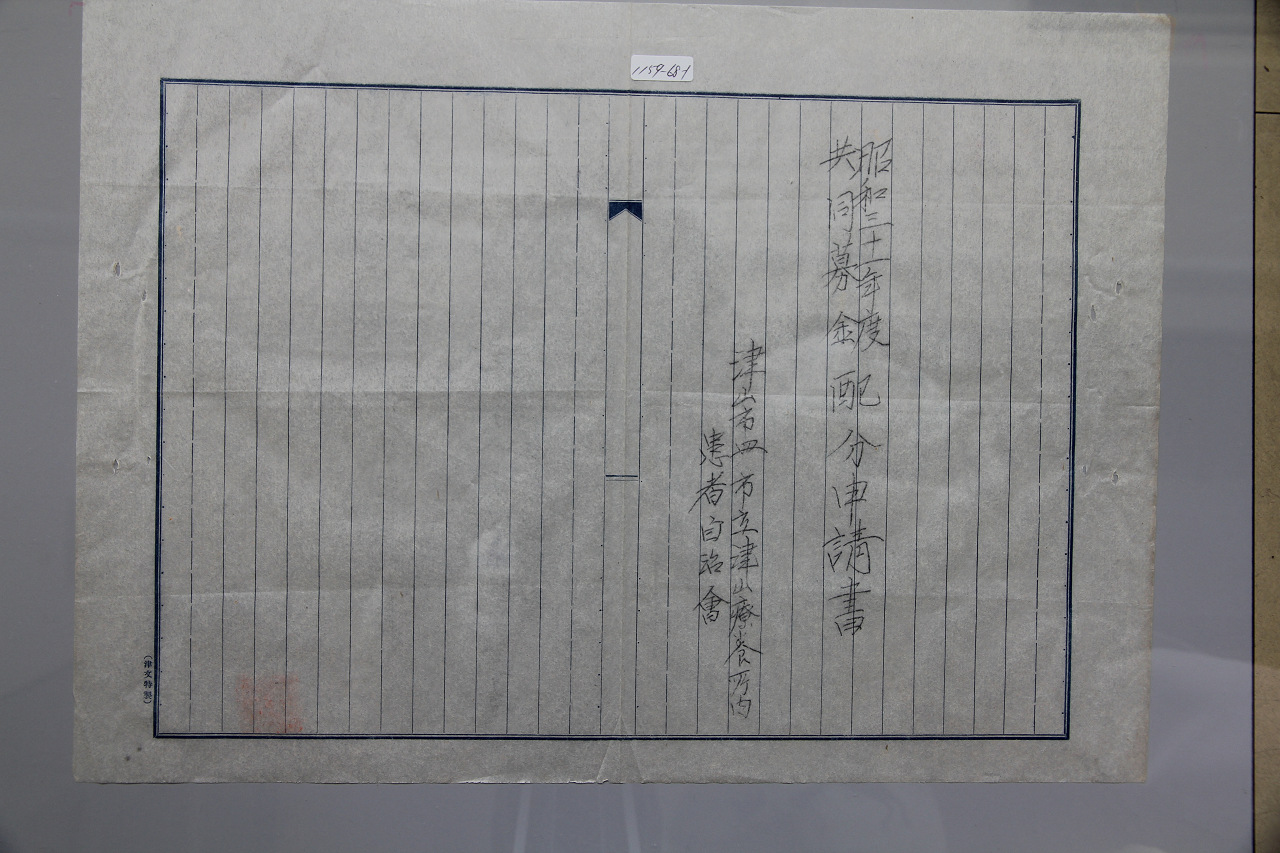 1159-68-1
昭和三十一年度
共同募金配分申請書
津山市皿 市立津山療養所内
患者自治會
(津文特製)